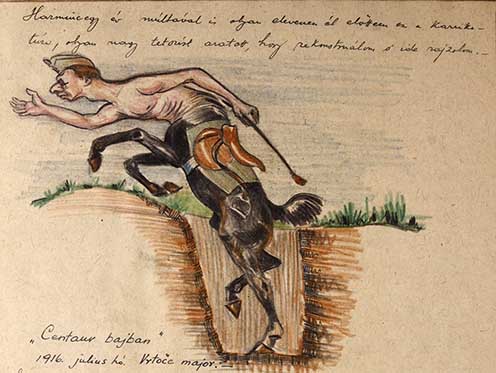 Harmincegy év multával is olyan elevenen él előttem ez a karrika-
túra, olyan nagy tetszést aratott, hogy rekonstruálom s ide rajzolom.—
„Centaur bajban"
1916. julius hó. Vrtoče major.